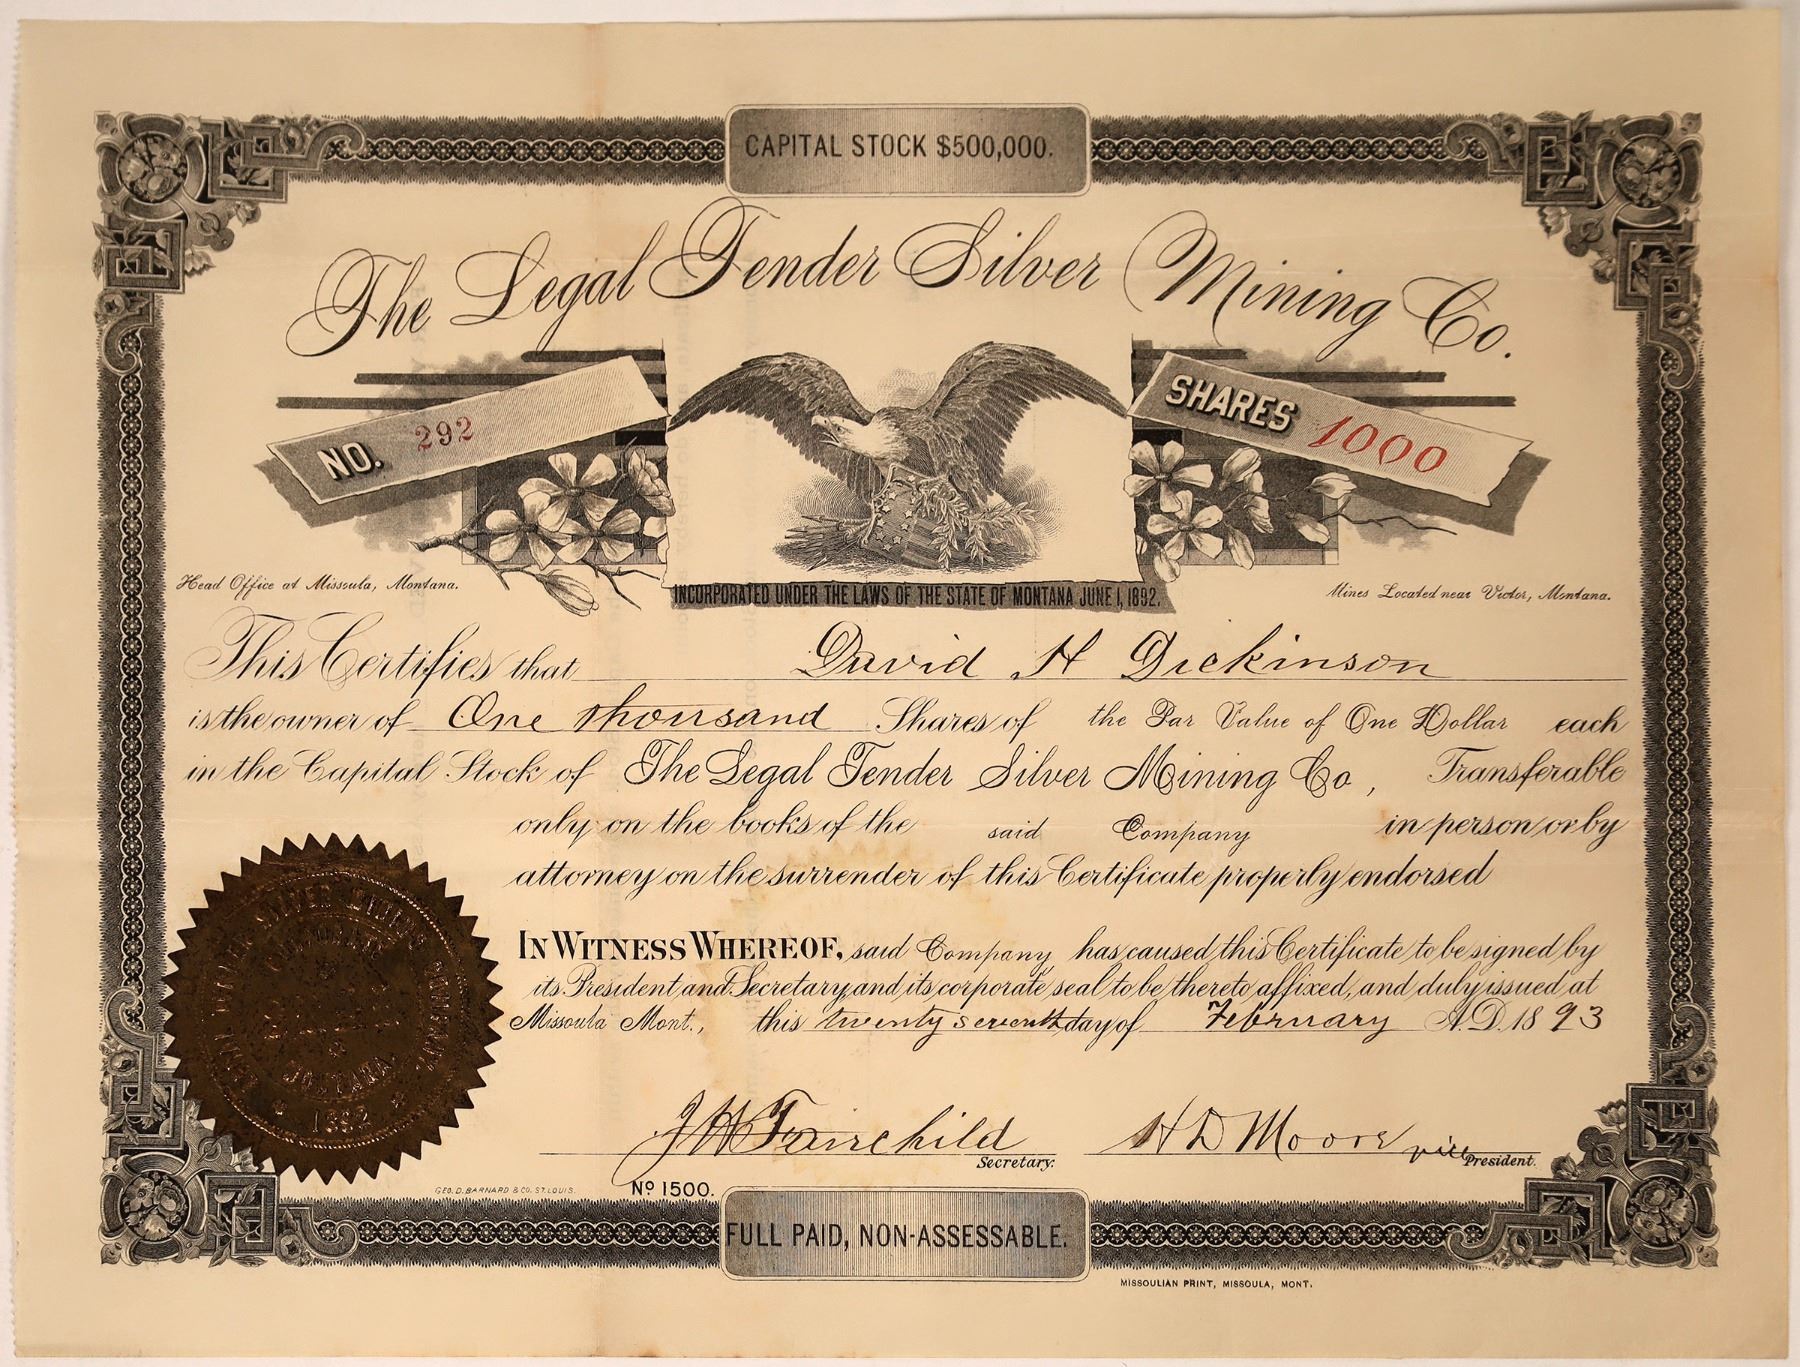 CAPITAL STOCK $500,000.
The Legal Tender Silver Mining Co.
NO. 292
SHARES 1000
Head Office at Missoula, Montana.
INCORPORATED UNDER THE LAWS OF THE STATE OF MONTANA JUNE 1, 1892.
Mines Located near Victor, Montana.
This Certifies that David H Dickinson
is the owner of One thousand Shares of the Par Value of One Dollar each
in the Capital Stock of The Legal Tender Silver Mining Co, Transferable
only on the books of the said Company in person or by
attorney on the surrender of this Certificate properly endorsed
IN WITNESS WHEREOF, said Company has caused this Certificate to be signed by
its President and Secretary, and its corporate seal to be thereto affixed, and duly issued at
Missoula Mont., this twenty seventh day of February A.D. 1893
SILVER MINING COMPANY
MONTANA.
1892
J W Fairchild
Secretary.
H D Moore vice President.
GEO. D. BARNARD & CO. ST. LOUIS.
No 1500.
FULL PAID, NON-ASSESSABLE.
MISSOULIAN PRINT, MISSOULA, MONT.